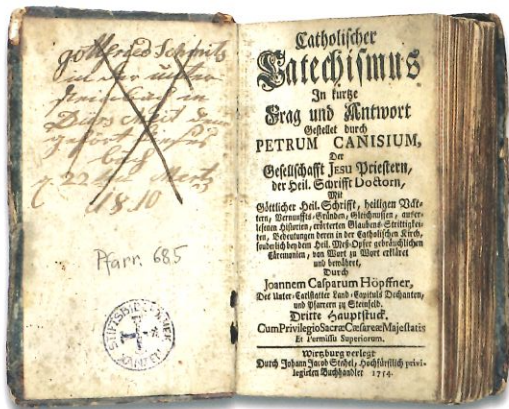 gottfried Schmitz
in der unter
in
Diess
gehört
buch
22 Mertz
1810
Pfarr. 685
Catholischer
Catechismus
In kurtze
Frag und Antwort
Gestellet durch
PETRUM CANISIUM,
Der
Gesellschafft JESU Priestern,
der Heil. Schrifft Doctorn,
Mit
Göttlicher Heil. Schrifft, heiligen Vät-
tern, Vernunffts-Gründen, Gleichnussen, auser-
lesenen Historien, erörterten Glaubens-Strittigkei-
ten, Bedeutungen deren in der Catholischen Kirch,
sonderlich bey dem Heil. Meß-Opfer gebräuchlichen
Cäremonien, von Wort zu Wort erkläret
und bewähret,
Durch
Joannem Casparum Höpffner,
Des Unter-Carlstatter Land-Capituls Dechanten,
und Pfarrern zu Steinfeld.
Dritte Hauptstuck.
Cum Privilegio Sacræ Cæsareæ Majestatis
Et Permissu Superiorum.
Wirtzburg verlegt
Durch Johann Jacob Stahel, Hochfürstlich privi-
legirten Buchhandler 1754.